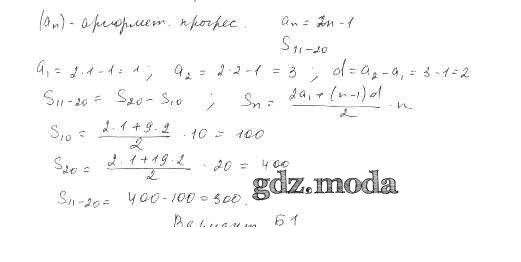 (aₙ) - арифмет. прогрес. aₙ = 2n - 1
S₁₁₋₂₀
a₁ = 2·1 - 1 = 1; a₂ = 2·2 - 1 = 3; d = a₂ - a₁ = 3 - 1 = 2
S₁₁₋₂₀ = S₂₀ - S₁₀; Sₙ = (2a₁ + (n-1)d)/2 · n
S₁₀ = (2·1 + 9·2)/2 · 10 = 100
S₂₀ = (2·1 + 19·2)/2 · 20 = 400
gdz.moda
S₁₁₋₂₀ = 400 - 100 = 300.
Вариант Б1